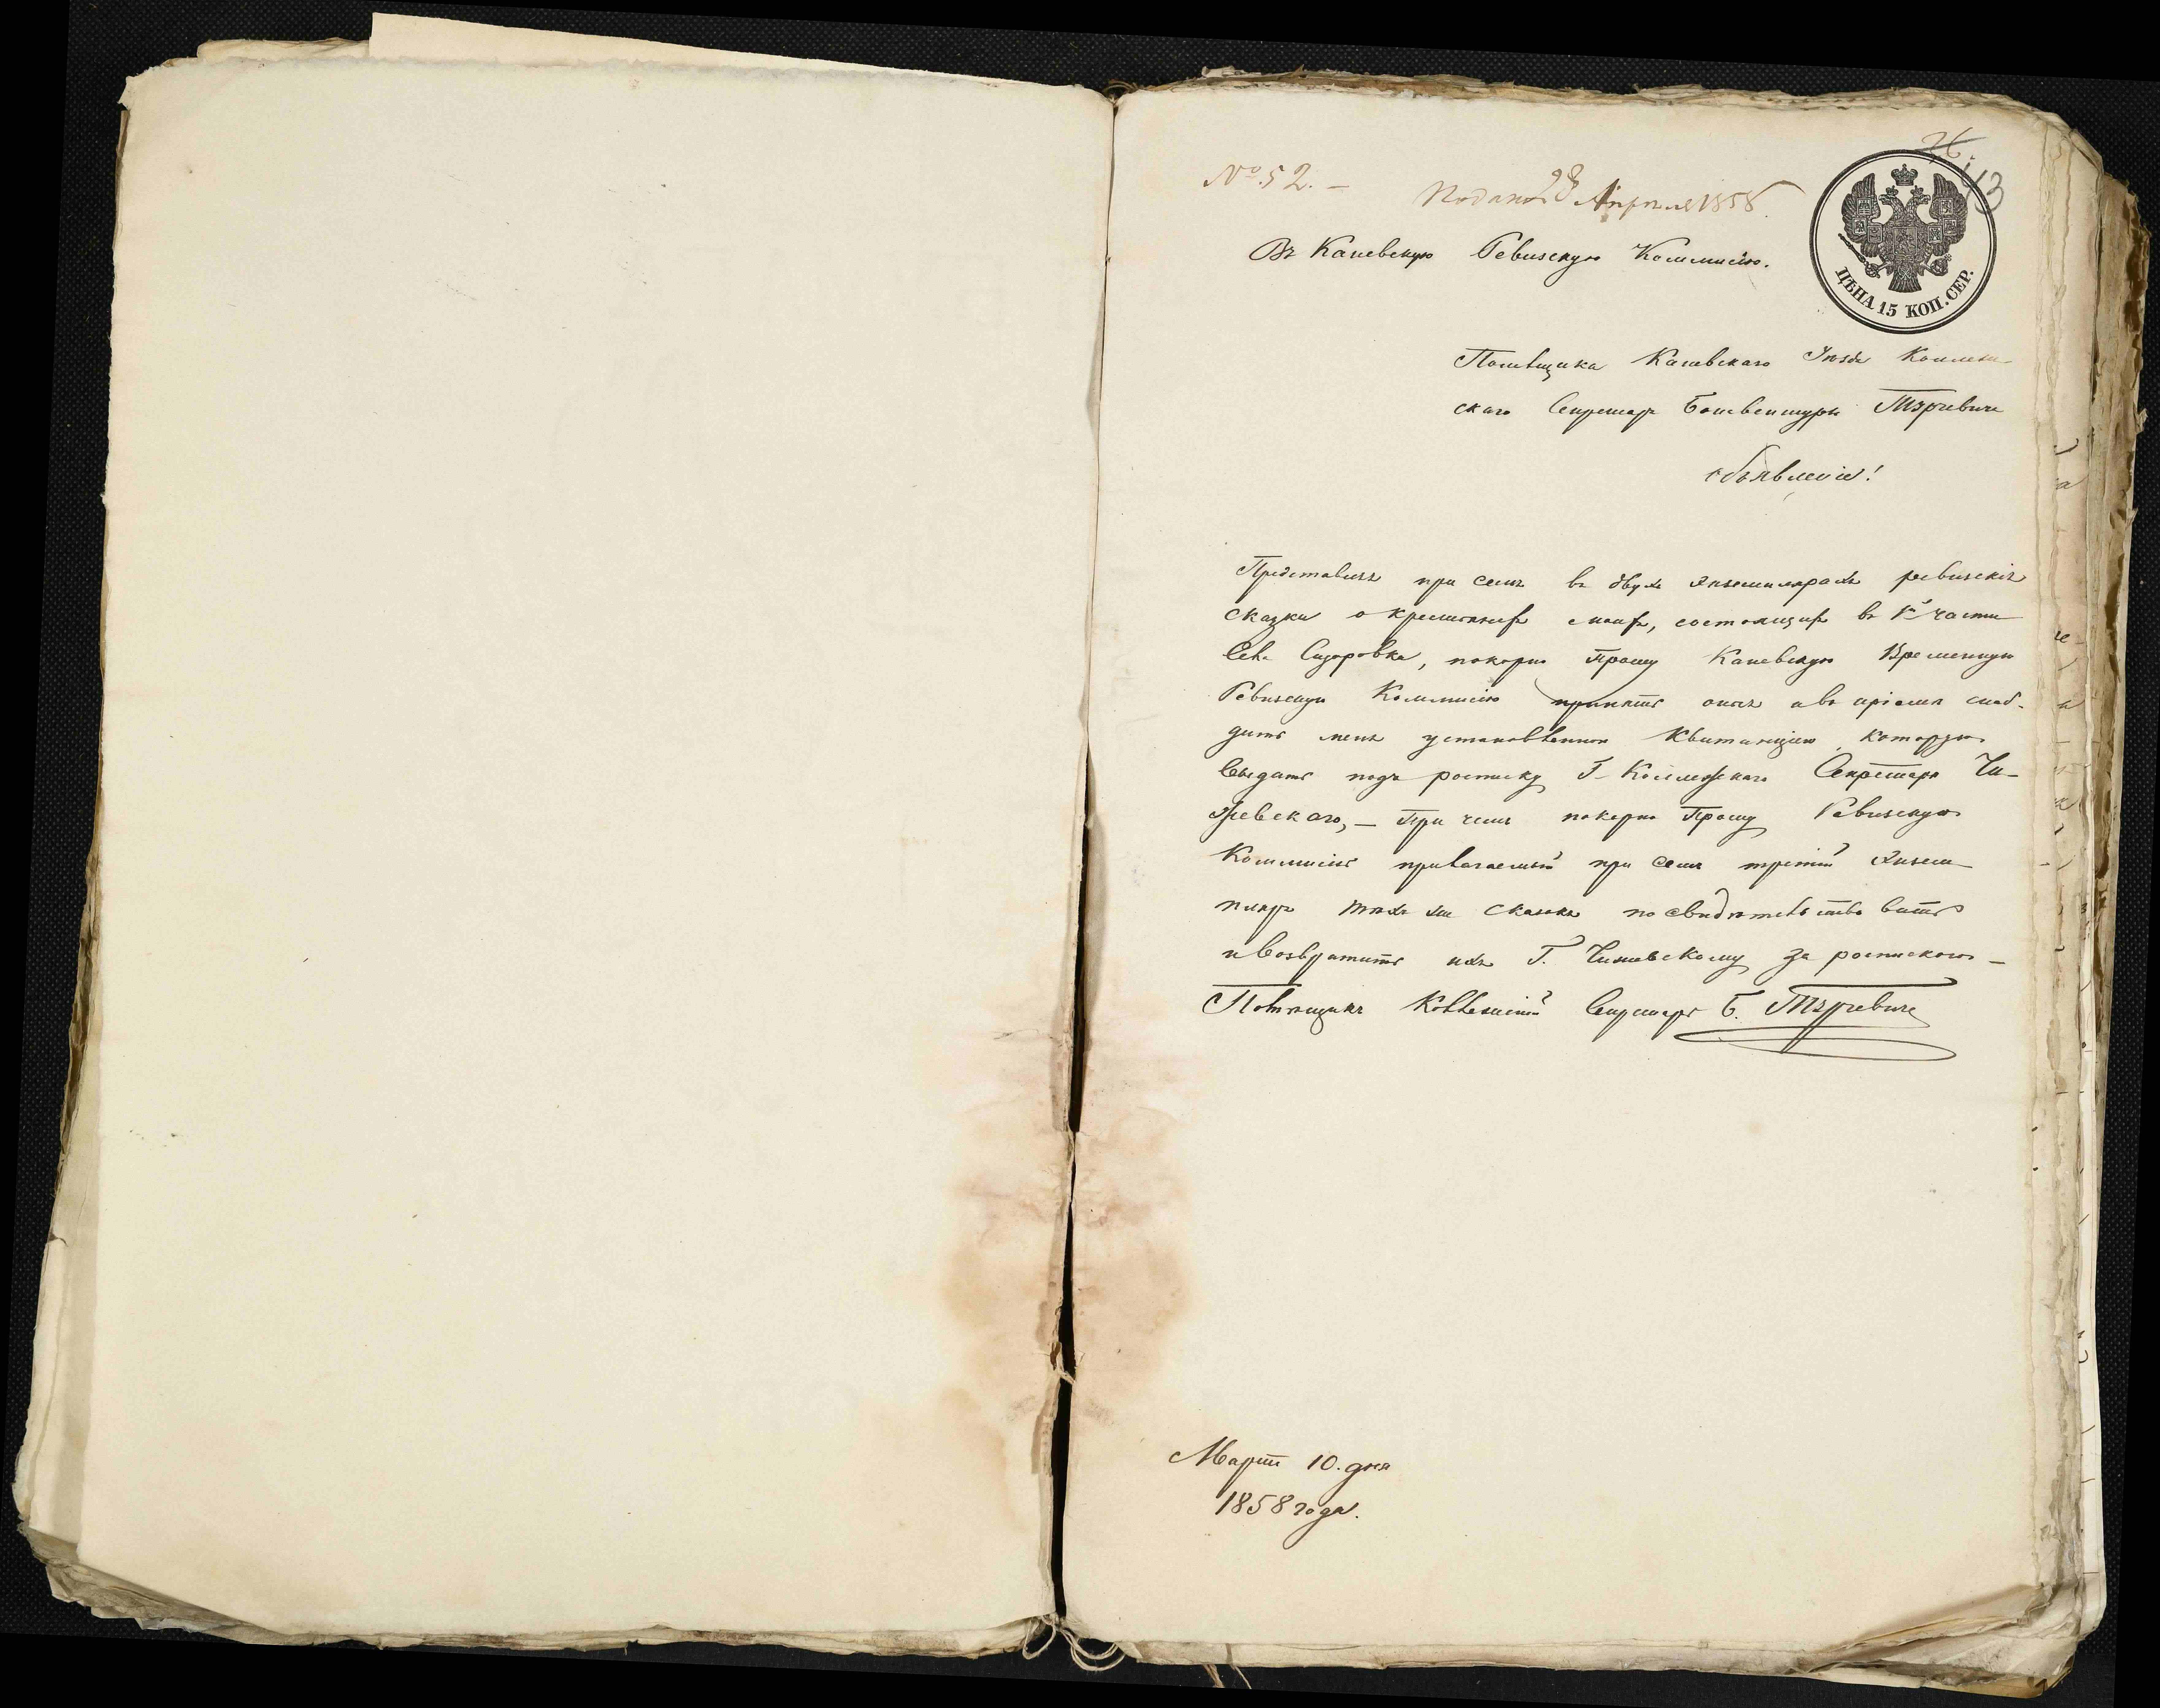 № 52. —
Подано 28 Апрѣля 1858.
43
ЦѢНА 15 КОП. СЕР.
Въ Каневскую Ревизскую Коммисію.
Помѣщика Каневскаго Уѣзда Коллеж-
скаго Секретаря Бонавентуры
объявленіе!
Представляя при семъ въ двухъ экземплярахъ ревизскія
сказки о крестьянахъ моихъ, состоящихъ въ части
Села Сидоровки, покорно прошу Каневскую Временную
Ревизскую Коммисію принять оныя и въ пріемѣ снаб-
дить меня установленною Квитанціею которую
выдать подъ росписку Г. Коллежскаго Секретаря
— При чемъ покорно прошу Ревизскую
Коммисію прилагаемый при семъ третій Экзем
пляръ тѣхъ же сказокъ посвидѣтельствовать
и возвратить ихъ Г. за роспискою —
Помѣщикъ Коллежскій Секретарь Б.
Мартъ 10. дня
1858 года.